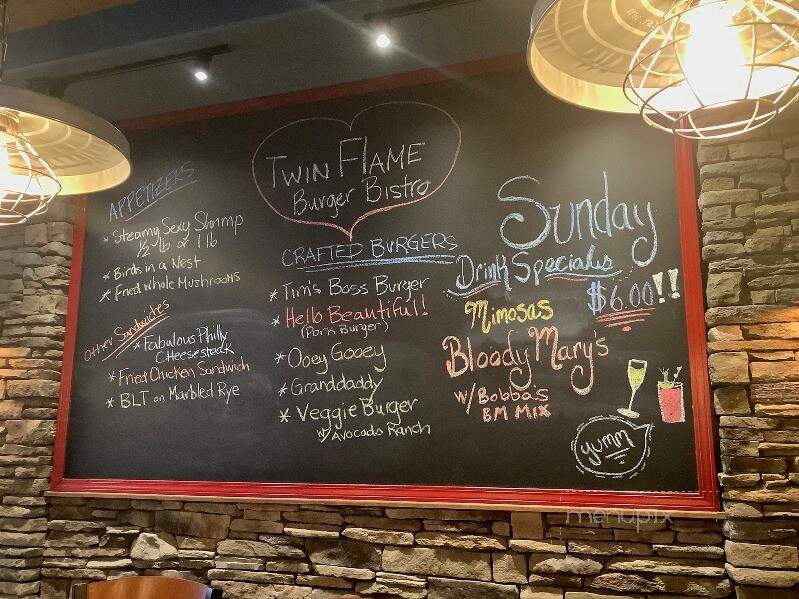 TWIN FLAME
Burger Bistro
APPETIZERS
* Steamy Sexy Shrimp
1/2 lb or 1 lb
* Birds in a Nest
* Fried Whole Mushrooms
Other Sandwiches
* Fabulous Philly
Cheesesteak
* Fried Chicken Sandwich
* BLT on Marbled Rye
CRAFTED BURGERS
* Tim's Boss Burger
* Hello Beautiful!
(Pork Burger)
* Ooey Gooey
* Granddaddy
* Veggie Burger
w/ Avocado Ranch
Sunday
Drink Specials
$6.00!!
Mimosas
Bloody Mary's
w/ Bobba's
BM MIX
yumm
menupix